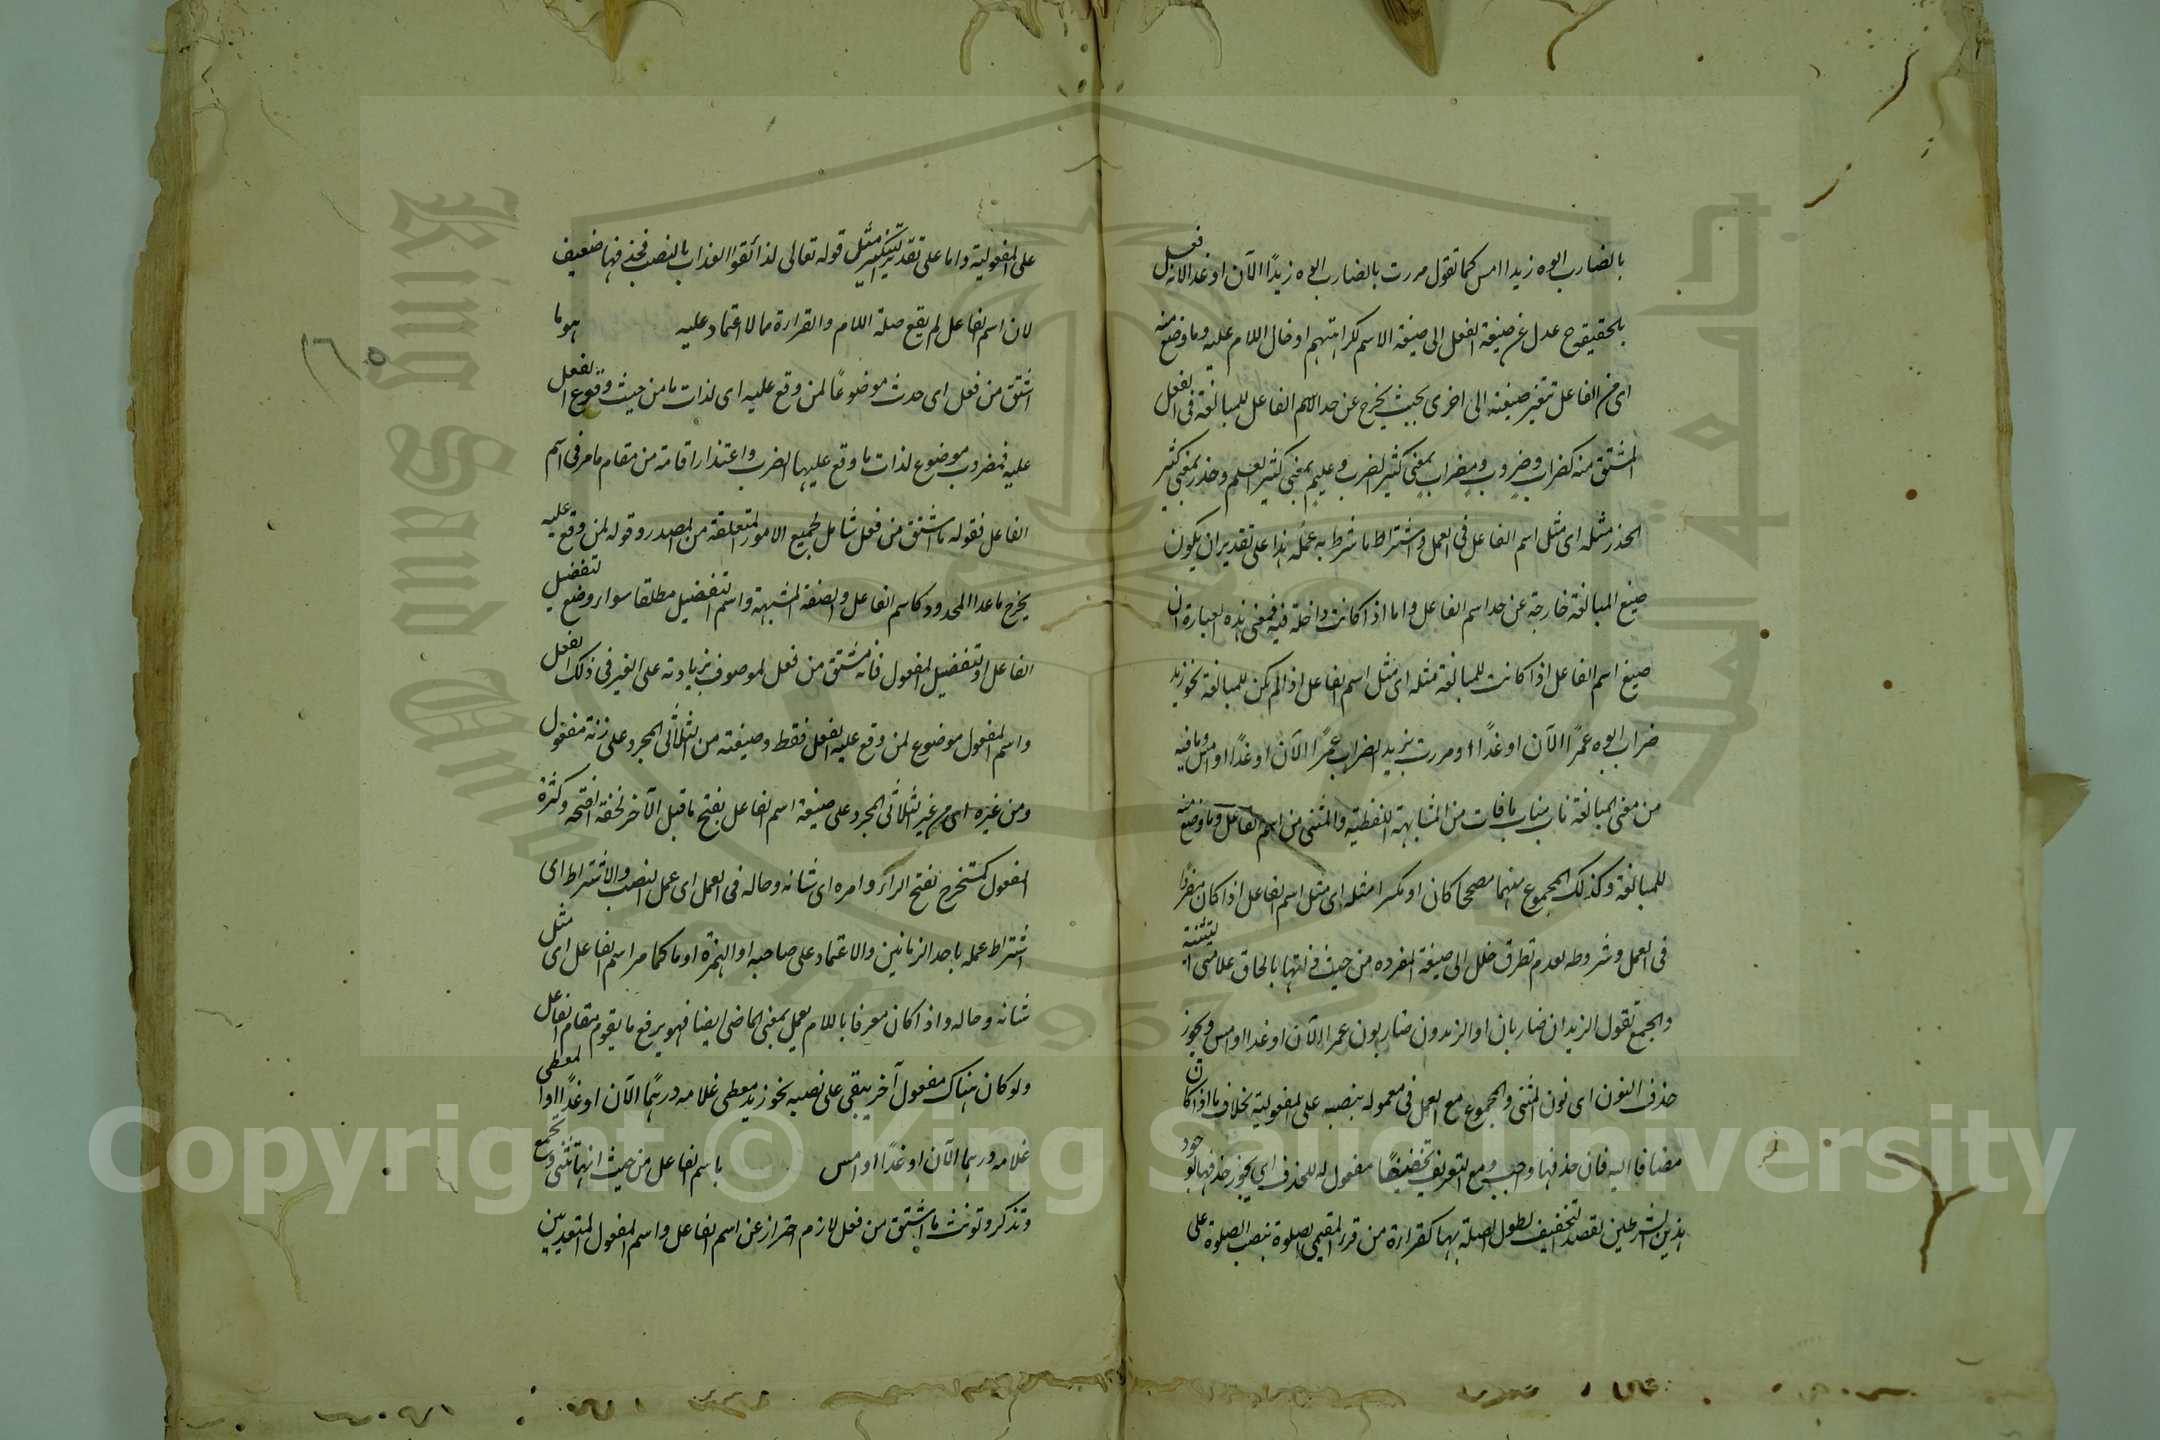 بالضارب ابوه زيدا امس كما تقول مررت بالضارب ابوه زيدًا الآن او غدا لانه فعل
بالحقيقة ح عدل عن صيغة الفعل الى صيغة الاسم لكراهتهم ادخال اللام عليه وما وضع منه
اى من الفاعل بتغير صيغته الى اخرى بحيث يخرج عن حد الاسم الفاعل للمبالغة فى الفعل
المشتق منه كضراب وضروب ومضراب بمعنى كثير الضرب وعليم بمعنى كثير العلم وحذر بمعنى كثير
الحذر مثله اى مثل اسم الفاعل فى العمل واشتراط ما شرط به عمله هذا على تقدير ان يكون
صيغ المبالغة خارجة عن حد اسم الفاعل واما اذا كانت داخلة فيه فمعنى هذه العبارة ان
صيغ اسم الفاعل اذا كانت للمبالغة مثله اى مثل اسم الفاعل اذا لم يكن للمبالغة نحو زيد
ضراب ابوه عمرًا الآن او غدًا ومررت بزيد الضراب عمرًا الآن او غدًا او امس وما فيه
من معنى المبالغة ناب مناب ما فات من المشابهة اللفظية والمثنى من اسم الفاعل وما وضع منه
للمبالغة وكذلك المجموع منهما مصححا كان او مكسرا مثله اى مثل اسم الفاعل اذا كان مفردًا
فى العمل وشروطه لعدم تطرق خلل الى صيغة المفرده من حيث ذاتها بالحاق علامتى التثنية
والجمع تقول الزيدان ضاربان او الزيدون ضاربون عمرا الآن او غدا او امس ويجوز
حذف النون اى نون المثنى والمجموع مع العمل فى معموله بنصبه على المفعولية بخلاف ما اذا كان
مضافا اليه فان حذفها واجب ومع التعريف تخفيفًا مفعول له للحذف اى يجوز حذفها لوجود
هذين الشرطين لقصد التخفيف لطول الصلة بها كقراءة من قرء المقيمى الصلوة بنصب الصلوة على
على المفعولية واما على تقدير تنكير مثل قوله تعالى لذائقوا العذاب بالنصب فحذفها ضعيف
لان اسم الفاعل لم يقع صلة اللام والقراءة مما لا اعتماد عليه هو ما
اشتق من فعل اى حدث موضوعًا لمن وقع عليه اى لذات ما من حيث وقوع الفعل
عليه فمضروب موضوع لذات ما وقع عليها الضرب واعتذار اقامة من مقام ما مر فى اسم
الفاعل فقوله ما اشتق من فعل شامل لجميع الامور المتعلقة من المصدر وقوله لمن وقع عليه
يخرج ما عدا المحدود كاسم الفاعل والصفة المشبهة واسم التفضيل مطلقا سواء وضع لتفضيل
الفاعل او لتفضيل المفعول فانه مشتق من فعل لموصوف بزيادته على الغير فى ذلك الفعل
واسم المفعول موضوع لمن وقع عليه الفعل فقط وصيغته من الثلاثى المجرد على زنة مفعول
ومن غيره اى من غير الثلاثى المجرد على صيغة اسم الفاعل بفتح ما قبل الآخر لخفة الفتحة وكثرة
المفعول كمستخرج بفتح الراء وامره اى شانه وحاله فى العمل اى عمل النصب والاشتراط اى
اشتراط عمله باحد الزمانين والاعتماد على صاحبه او الهمزة او ما كما مر اسم الفاعل اى مثل
شانه وحاله واذا كان معرفا باللام يعمل بمعنى الماضى ايضا فهو يرفع ما يقوم مقام الفاعل
ولو كان هناك مفعول آخر يبقى على نصبه نحو زيد معطى غلامه درهمًا الآن او غدًا او المعطى
غلامه درهما الآن او غدًا او امس باسم الفاعل من حيث انها تثنى وتجمع
وتذكر وتونث ما اشتق من فعل لازم احتراز عن اسم الفاعل واسم المفعول المتعديين
Copyright © King Saud University